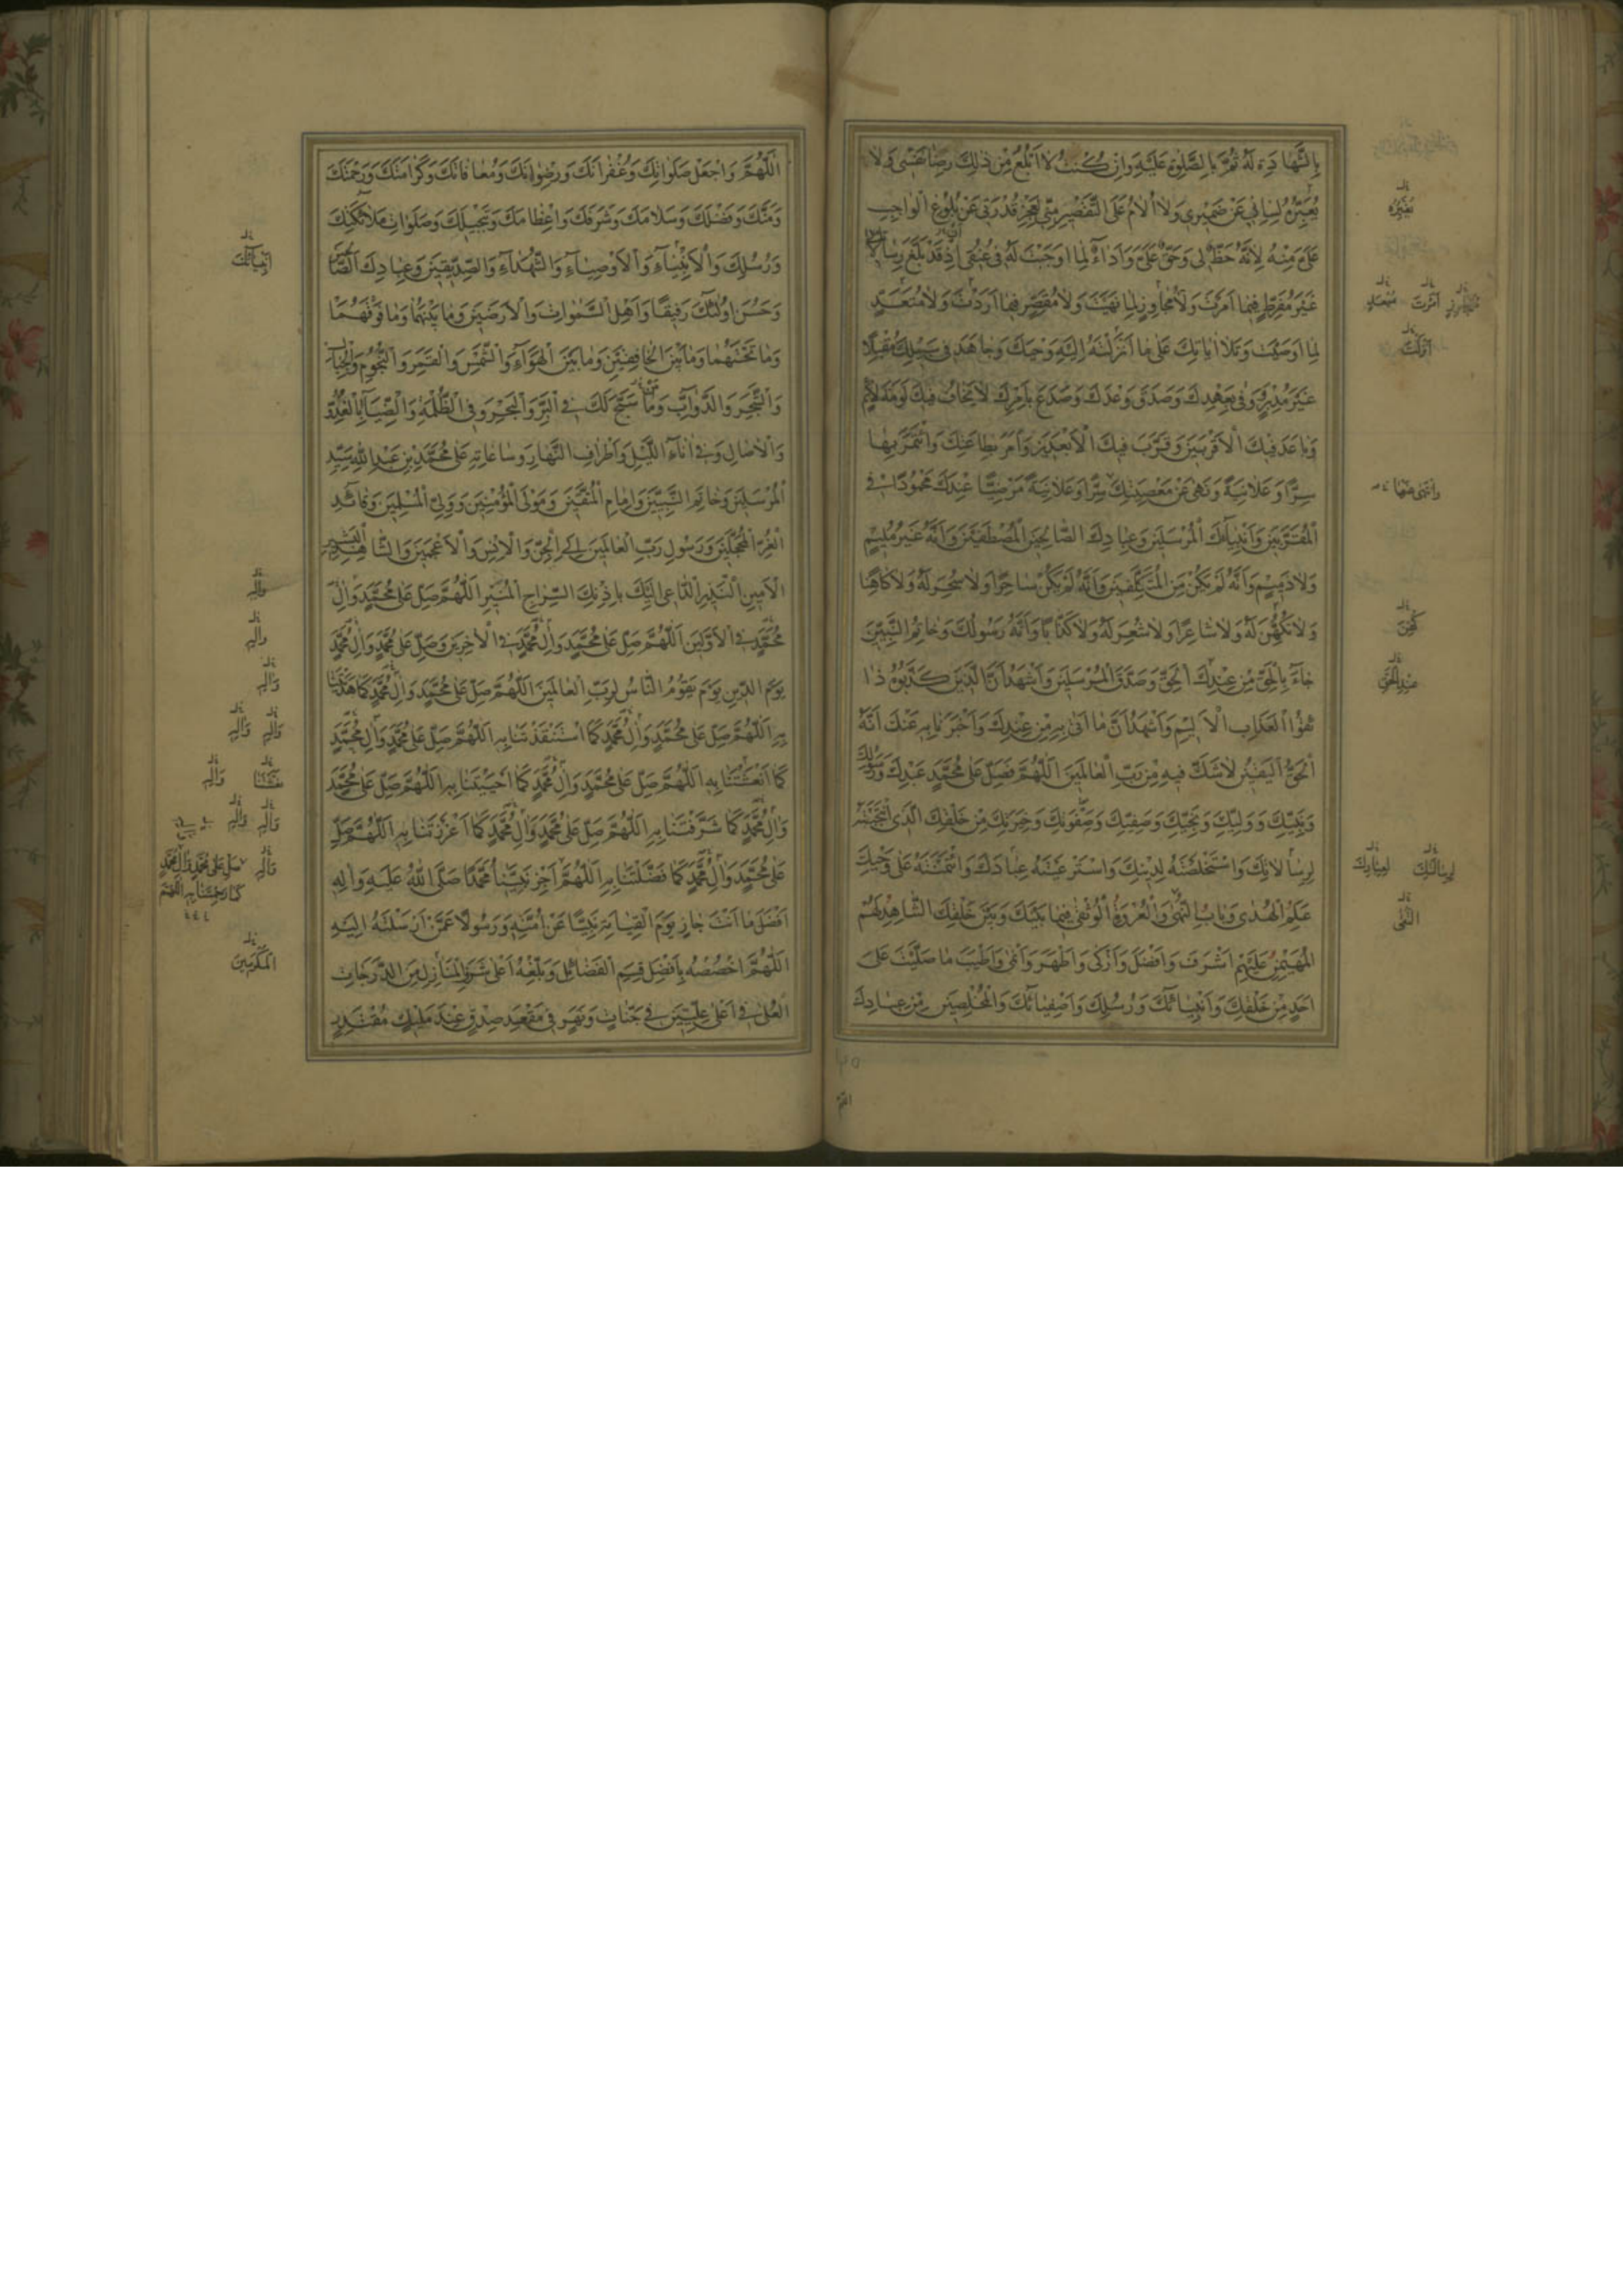 بِالشَّهَادَةِ لَهُ ثُمَّ بِالصَّلٰوةِ عَلَيْهِ وَاِنْ كُنْتُ لَا اَبْلُغُ مِنْ ذٰلِكَ رِضَا نَفْسِی وَلَا
يُعَبِّرُهُ لِسَانِي عَنْ ضَمِيرِي وَلَا اُلَامُ عَلَى التَّقْصِيرِ مِنِّي لِعَجْزِ قُدْرَتِي عَنْ بُلُوغِ الْوَاجِبِ
عَلَيَّ مِنْهُ لِاَنَّهُ حَظٌّ لِي وَحَقٌّ عَلَيَّ وَاَدَاءٌ لِمَا اَوْجَبْتَ لَهُ فِي عُنُقِي اِذْ قَدْ بَلَّغَ رِسَالَاتِكَ
غَيْرَ مُفَرِّطٍ فِيمَا اَمَرْتَ وَلَا مُجَاوِزٍ لِمَا نَهَيْتَ وَلَا مُقَصِّرٍ فِيمَا اَرَدْتَ وَلَا مُتَعَدٍّ
لِمَا اَوْصَيْتَ وَتَلَا اٰيَاتِكَ عَلٰى مَا اَنْزَلْتَهُ اِلَيْهِ وَحْيَكَ وَجَاهَدَ فِي سَبِيلِكَ مُقْبِلًا
غَيْرَ مُدْبِرٍ وَوَفٰى بِعَهْدِكَ وَصَدَّقَ وَعْدَكَ وَصَدَعَ بِاَمْرِكَ لَا يَخَافُ فِيكَ لَوْمَةَ لَائِمٍ
وَبَاعَدَ فِيكَ الْاَقْرَبِينَ وَقَرَّبَ فِيكَ الْاَبْعَدِينَ وَاَمَرَ بِطَاعَتِكَ وَائْتَمَرَ بِهَا
سِرًّا وَعَلَانِيَةً وَنَهٰى عَنْ مَعْصِيَتِكَ سِرًّا وَعَلَانِيَةً مَرْضِيًّا عِنْدَكَ مَحْمُودًا فِي
الْمُقَرَّبِينَ وَاَنْبِيَائِكَ الْمُرْسَلِينَ وَعِبَادِكَ الصَّالِحِينَ الْمُصْطَفَيْنَ وَاَنَّهُ غَيْرُ مُلِيمٍ
وَلَا ذَمِيمٍ وَاَنَّهُ لَمْ يَكُنْ مِنَ الْمُتَكَلِّفِينَ وَاَنَّهُ لَمْ يَكُنْ سَاحِرًا وَلَا سُحِرَ لَهُ وَلَا كَاهِنًا
وَلَا تُكُهِّنَ لَهُ وَلَا شَاعِرًا وَلَا شُعِرَ لَهُ وَلَا كَذَّابًا وَاَنَّهُ رَسُولُكَ وَخَاتَمُ النَّبِيِّينَ
جَاءَ بِالْحَقِّ مِنْ عِنْدِكَ الْحَقِّ وَصَدَّقَ الْمُرْسَلِينَ وَاَشْهَدُ اَنَّ الَّذِينَ كَذَّبُوهُ ذَا
ئِقُوا الْعَذَابِ الْاَلِيمِ وَاَشْهَدُ اَنَّ مَا اَتٰى بِهِ مِنْ عِنْدِكَ وَاَخْبَرَنَا بِهِ عَنْكَ اَنَّهُ
الْحَقُّ الْيَقِينُ لَا شَكَّ فِيهِ مِنْ رَبِّ الْعَالَمِينَ اَللّٰهُمَّ فَصَلِّ عَلٰى مُحَمَّدٍ عَبْدِكَ وَرَسُولِكَ
وَنَبِيِّكَ وَوَلِيِّكَ وَنَجِيِّكَ وَصَفِيِّكَ وَصَفْوَتِكَ وَخِيَرَتِكَ مِنْ خَلْقِكَ الَّذِي انْتَجَبْتَهُ
لِرِسَالَاتِكَ وَاسْتَخْلَصْتَهُ لِدِينِكَ وَاسْتَرْعَيْتَهُ عِبَادَكَ وَائْتَمَنْتَهُ عَلٰى وَحْيِكَ
عَلَمِ الْهُدٰى وَبَابِ النُّهٰى وَالْعُرْوَةِ الْوُثْقٰى فِيمَا بَيْنَكَ وَبَيْنَ خَلْقِكَ الشَّاهِدِ لَهُمْ
الْمُهَيْمِنِ عَلَيْهِمْ اَشْرَفَ وَاَفْضَلَ وَاَزْكٰى وَاَطْهَرَ وَاَنْمٰى وَاَطْيَبَ مَا صَلَّيْتَ عَلٰى
اَحَدٍ مِنْ خَلْقِكَ وَاَنْبِيَائِكَ وَرُسُلِكَ وَاَصْفِيَائِكَ وَالْمُخْلِصِينَ مِنْ عِبَادِكَ
اَللّٰهُمَّ وَاجْعَلْ صَلَوَاتِكَ وَغُفْرَانَكَ وَرِضْوَانَكَ وَمُعَافَاتَكَ وَكَرَامَتَكَ وَرَحْمَتَكَ
وَمَنَّكَ وَفَضْلَكَ وَسَلَامَكَ وَشَرَفَكَ وَاِعْظَامَكَ وَتَبْجِيلَكَ وَصَلَوَاتِ مَلَائِكَتِكَ
وَرُسُلِكَ وَالْاَنْبِيَاءِ وَالْاَوْصِيَاءِ وَالشُّهَدَاءِ وَالصِّدِّيقِينَ وَعِبَادِكَ الصَّالِحِينَ
وَحَسُنَ اُولٰئِكَ رَفِيقًا وَاَهْلِ السَّمٰوَاتِ وَالْاَرَضِينَ وَمَا بَيْنَهُمَا وَمَا فَوْقَهُمَا
وَمَا تَحْتَهُمَا وَمَا بَيْنَ الْخَافِقَيْنِ وَمَا بَيْنَ الْهَوَاءِ وَالشَّمْسِ وَالْقَمَرِ وَالنُّجُومِ وَالْجِبَالِ
وَالشَّجَرِ وَالدَّوَابِّ وَمَا سَبَّحَ لَكَ فِي الْبَرِّ وَالْبَحْرِ وَفِي الظُّلْمَةِ وَالضِّيَاءِ بِالْغُدُوِّ
وَالْاٰصَالِ وَفِي اٰنَاءِ اللَّيْلِ وَاَطْرَافِ النَّهَارِ وَسَاعَاتِهِ عَلٰى مُحَمَّدِ بْنِ عَبْدِ اللّٰهِ سَيِّدِ
الْمُرْسَلِينَ وَخَاتَمِ النَّبِيِّينَ وَاِمَامِ الْمُتَّقِينَ وَمَوْلَى الْمُؤْمِنِينَ وَوَلِيِّ الْمُسْلِمِينَ وَقَائِدِ
الْغُرِّ الْمُحَجَّلِينَ وَرَسُولِ رَبِّ الْعَالَمِينَ اِلَى الْجِنِّ وَالْاِنْسِ وَالْاَعْجَمِينَ وَالشَّاهِدِ الْبَشِيرِ
الْاَمِينِ النَّذِيرِ الدَّاعِي اِلَيْكَ بِاِذْنِكَ السِّرَاجِ الْمُنِيرِ اَللّٰهُمَّ صَلِّ عَلٰى مُحَمَّدٍ وَاٰلِ
مُحَمَّدٍ فِي الْاَوَّلِينَ اَللّٰهُمَّ صَلِّ عَلٰى مُحَمَّدٍ وَاٰلِ مُحَمَّدٍ فِي الْاٰخِرِينَ وَصَلِّ عَلٰى مُحَمَّدٍ وَاٰلِ مُحَمَّدٍ
يَوْمَ الدِّينِ يَوْمَ يَقُومُ النَّاسُ لِرَبِّ الْعَالَمِينَ اَللّٰهُمَّ صَلِّ عَلٰى مُحَمَّدٍ وَاٰلِ مُحَمَّدٍ كَمَا هَدَيْتَنَا
بِهِ اَللّٰهُمَّ صَلِّ عَلٰى مُحَمَّدٍ وَاٰلِ مُحَمَّدٍ كَمَا اسْتَنْقَذْتَنَا بِهِ اَللّٰهُمَّ صَلِّ عَلٰى مُحَمَّدٍ وَاٰلِ مُحَمَّدٍ
كَمَا اَنْعَشْتَنَا بِهِ اَللّٰهُمَّ صَلِّ عَلٰى مُحَمَّدٍ وَاٰلِ مُحَمَّدٍ كَمَا اَحْيَيْتَنَا بِهِ اَللّٰهُمَّ صَلِّ عَلٰى مُحَمَّدٍ
وَاٰلِ مُحَمَّدٍ كَمَا شَرَّفْتَنَا بِهِ اَللّٰهُمَّ صَلِّ عَلٰى مُحَمَّدٍ وَاٰلِ مُحَمَّدٍ كَمَا اَعْزَزْتَنَا بِهِ اَللّٰهُمَّ صَلِّ
عَلٰى مُحَمَّدٍ وَاٰلِ مُحَمَّدٍ كَمَا فَضَّلْتَنَا بِهِ اَللّٰهُمَّ اجْزِ نَبِيَّنَا مُحَمَّدًا صَلَّى اللّٰهُ عَلَيْهِ وَاٰلِهِ
اَفْضَلَ مَا اَنْتَ جَازٍ يَوْمَ الْقِيَامَةِ نَبِيًّا عَنْ اُمَّتِهِ وَرَسُولًا عَمَّنْ اَرْسَلْتَهُ اِلَيْهِ
اَللّٰهُمَّ اخْصُصْهُ بِاَفْضَلِ قِسَمِ الْفَضَائِلِ وَبَلِّغْهُ اَعْلٰى شَرَفِ الْمَنَازِلِ مِنَ الدَّرَجَاتِ
الْعُلٰى فِي اَعْلٰى عِلِّيِّينَ فِي جَنَّاتٍ وَنَهَرٍ فِي مَقْعَدِ صِدْقٍ عِنْدَ مَلِيكٍ مُقْتَدِرٍ